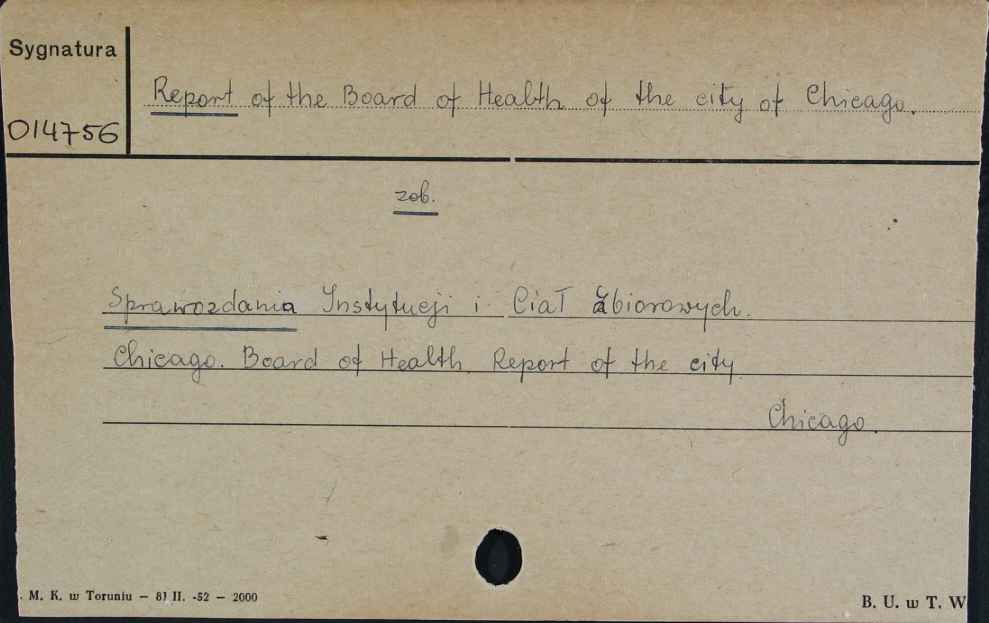 Sygnatura
014756
Report of the Board of Health of the city of Chicago.
zob.
Sprawozdania Instytucji i Ciał Zbiorowych.
Chicago. Board of Health. Report of the city
Chicago.
. M. K. w Toruniu — 81 II. -52 — 2000
B. U. w T. W